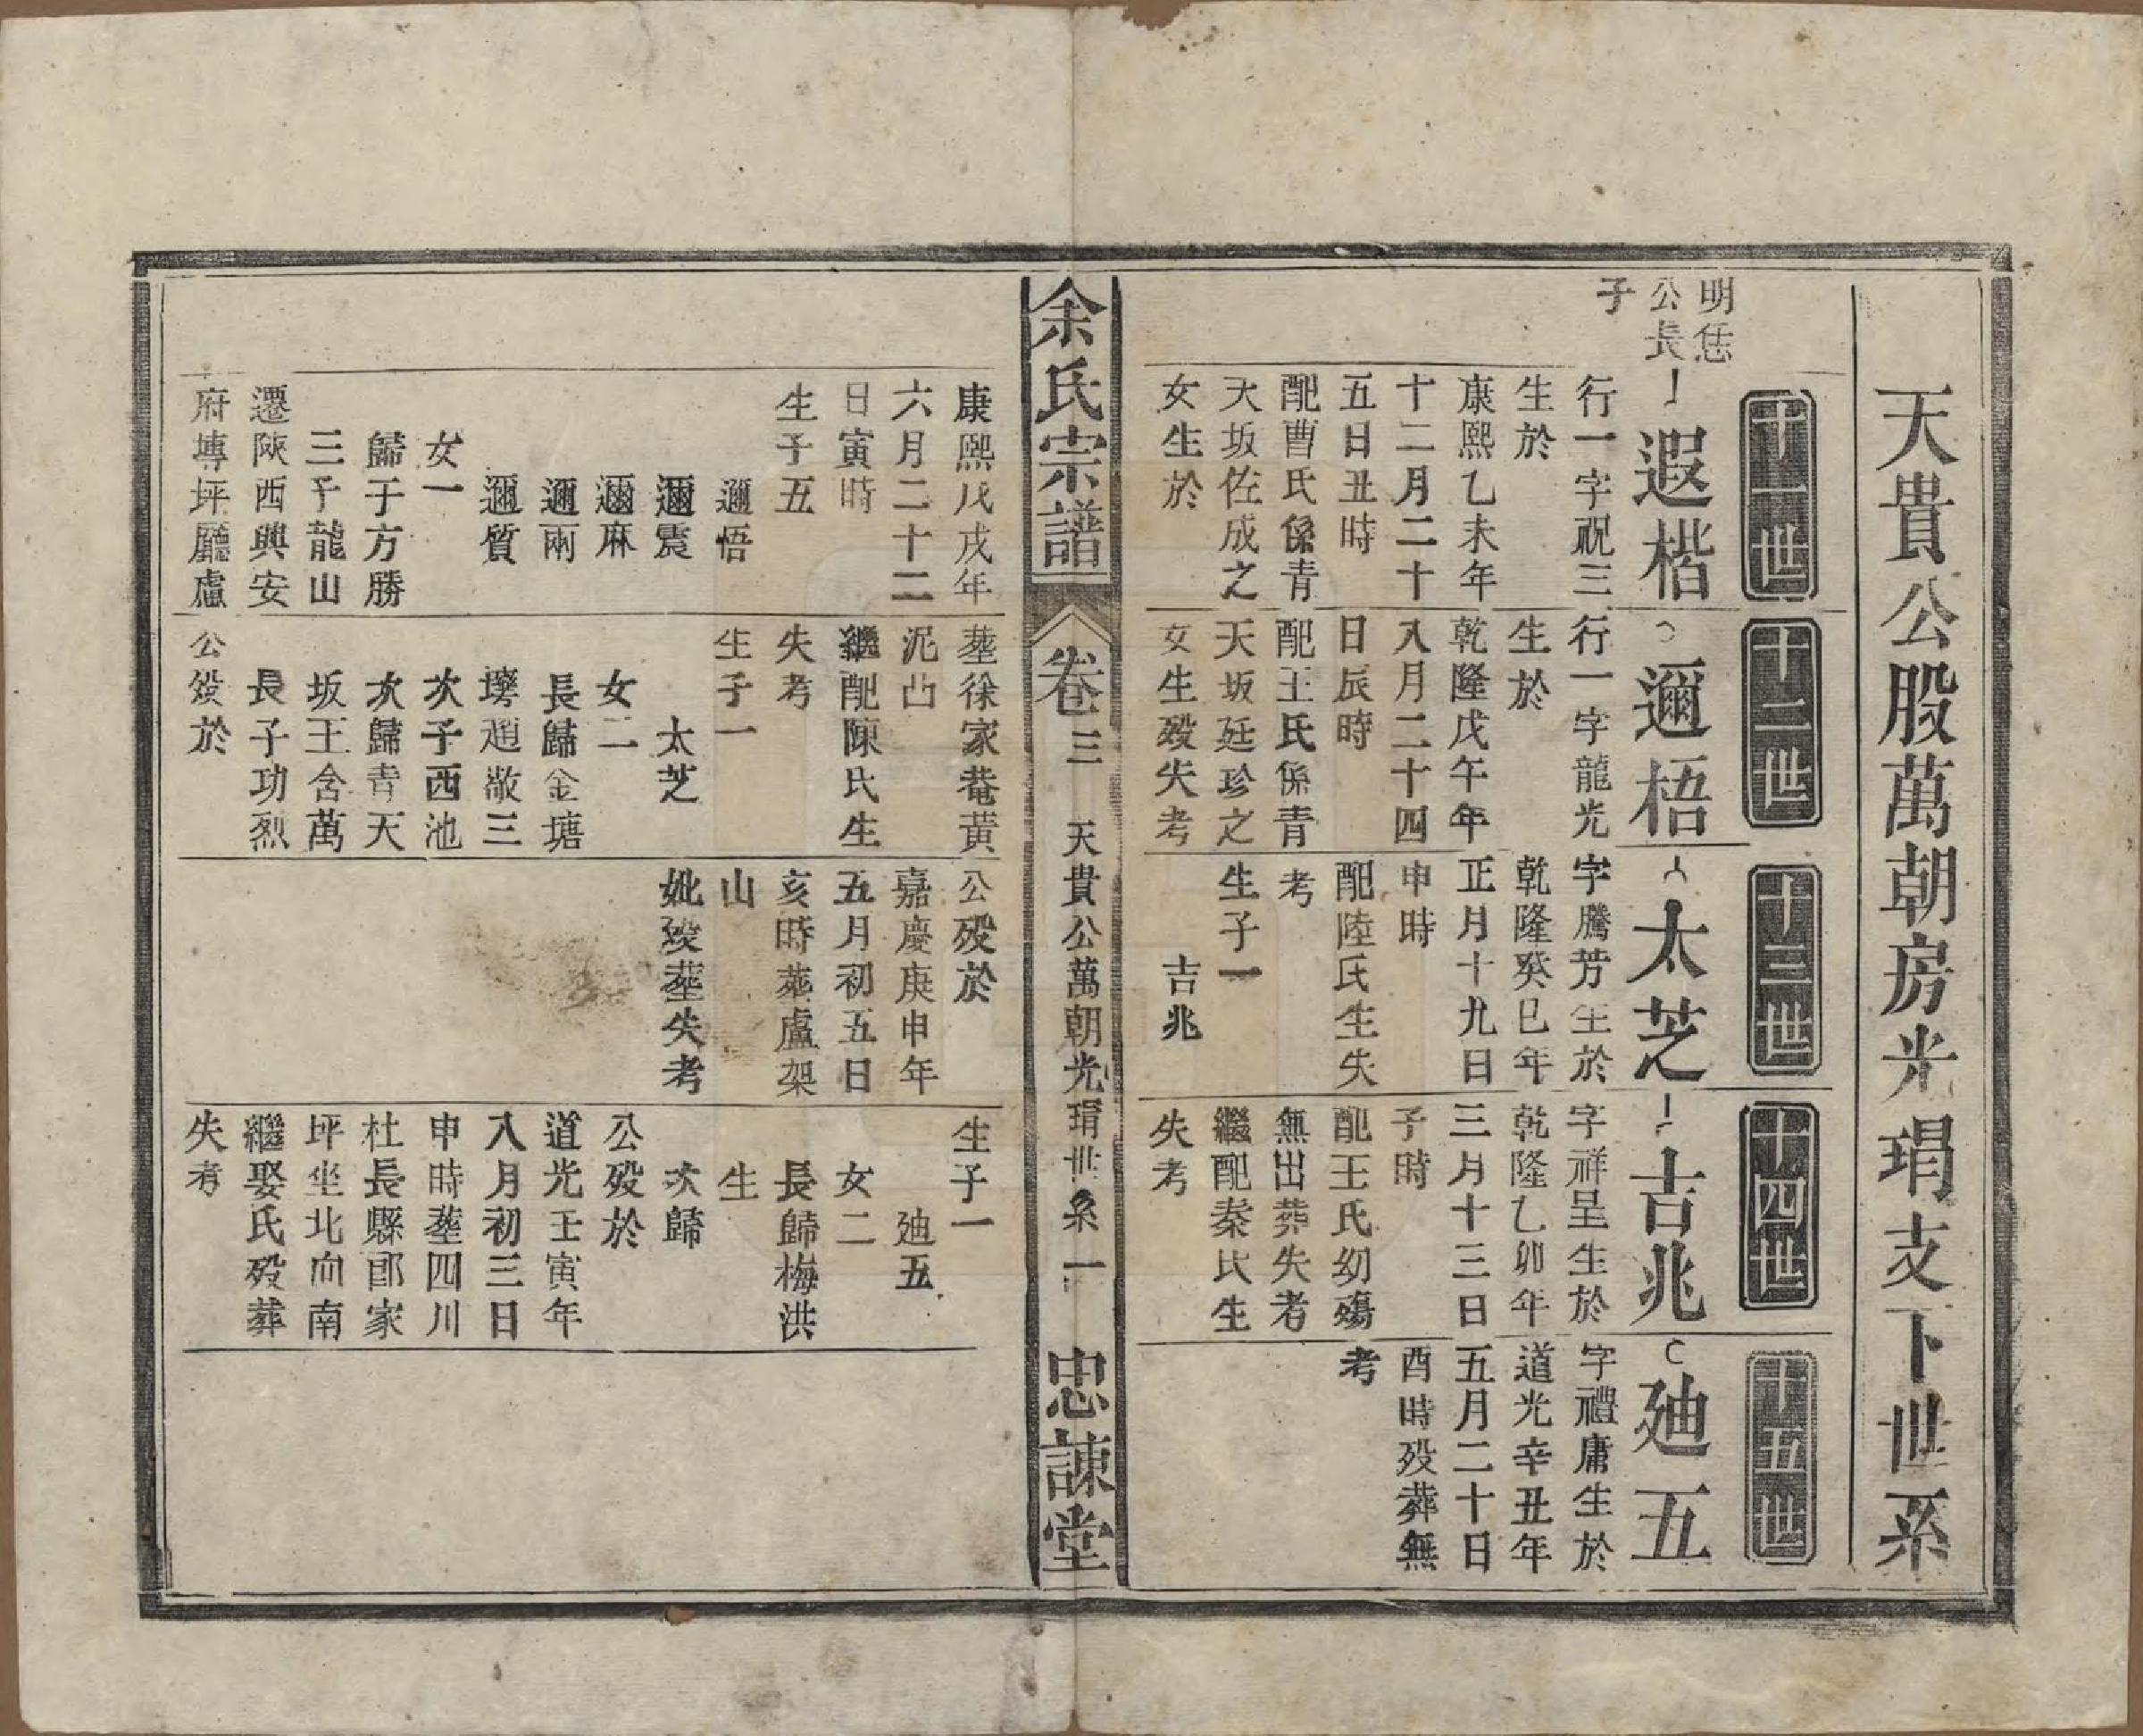 天貴公股萬朝房光瑁支下世系
十一世
十二世
十三世
十四世
十五世
明恁
公長
子
遐楷
行一字視三
生於
康熙乙未年
十二月二十
五日丑時
配曹氏係青
天坂佐成之
女生於
邇梧
行一字龍光
生於
乾隆戊午年
八月二十四
日辰時
配王氏係青
天坂廷珍之
女生歿失考
太芝
字騰芳生於
乾隆癸巳年
正月十九日
申時
配陸氏生失
考
生子一
吉兆
吉兆
字祥呈生於
乾隆乙卯年
三月十三日
子時
配王氏幼殤
無出葬失考
繼配秦氏生
失考
廸五
字禮庸生於
道光辛丑年
五月二十日
酉時歿葬無
考
余氏宗譜
卷三
天貴公萬朝光瑁世系一
忠諫堂
康熙戊戌年
六月二十二
日寅時
生子五
邇悟
邇震
邇麻
邇兩
邇質
女一
歸于方勝
三子龍山
遷陝西興安
府塼坪廳盧
塟徐家菴黃
泥凸
繼配陳氏生
失考
生子一
太芝
女二
長歸金塘
塝趙敞三
次子西池
次歸青天
坂王含萬
長子功烈
公歿於
公歿於
嘉慶庚申年
五月初五日
亥時葬盧架
山
妣歿塟失考
生子一
廸五
女二
長歸梅洪
生
次歸
公歿於
道光壬寅年
八月初三日
申時塟四川
杜長縣郎家
坪坐北向南
繼娶氏歿葬
失考